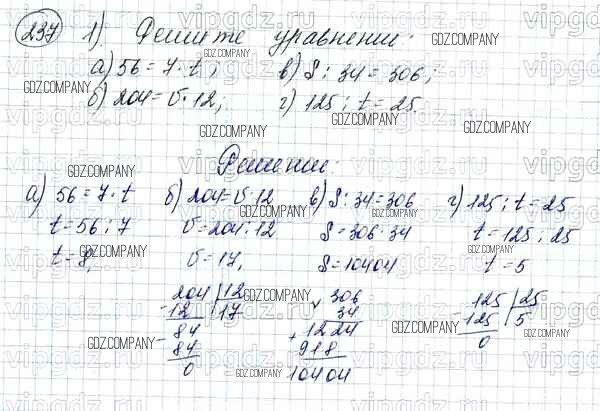 237 1). Решите уравнения:
а) 56 = 7 · t; в) S : 34 = 306;
б) 204 = v · 12; г) 125 : t = 25.
Решение:
а) 56 = 7 · t б) 204 = v · 12 в) S : 34 = 306 г) 125 : t = 25
t = 56 : 7 v = 204 : 12 S = 306 · 34 t = 125 : 25
t = 8, v = 17, S = 10404 t = 5
204 | 12 306 125 | 25
- 12 17 × 34 - 125 5
84 1224 0
- 84 + 918
0 10404
GDZ.COMPANY
vipgdz.ru